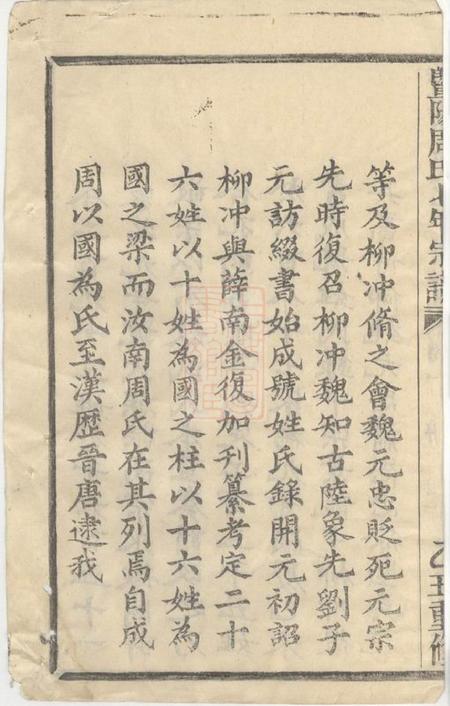 等及柳冲脩之會魏元忠貶死元宗
先時復召柳冲魏知古陸象先劉子
元訪綴書始成號姓氏錄開元初詔
柳冲與薛南金復加刊纂考定二十
六姓以十姓為國之柱以十六姓為
國之梁而汝南周氏在其列焉自成
周以國為氏至漢歷晉唐逮我